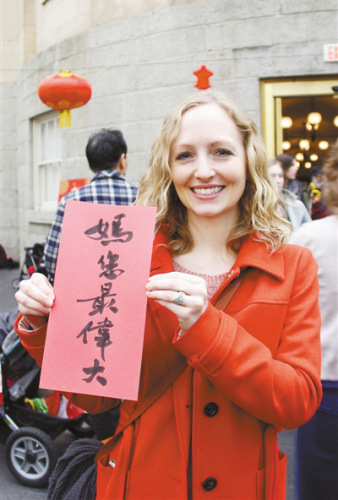 媽您最偉大